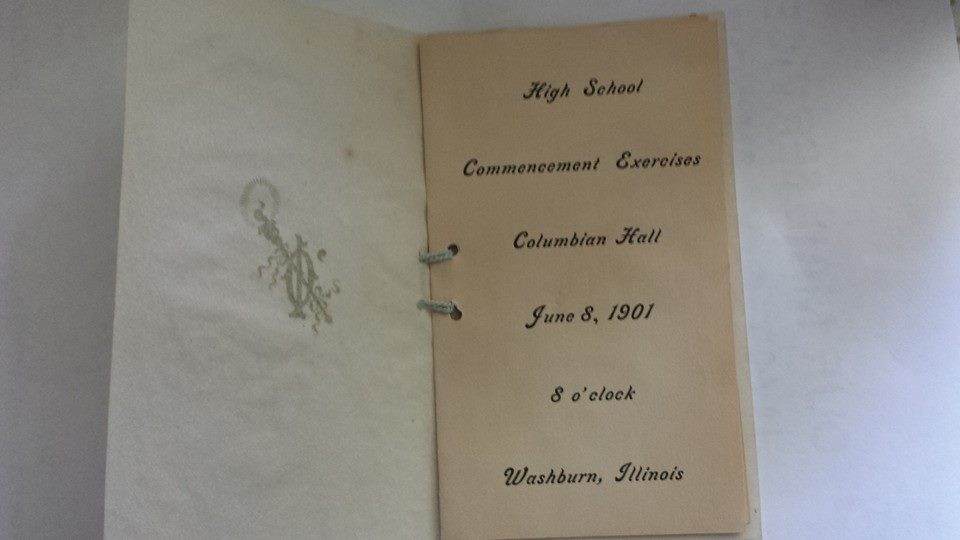 High School
Commencement Exercises
Columbian Hall
June 8, 1901
8 o'clock
Washburn, Illinois